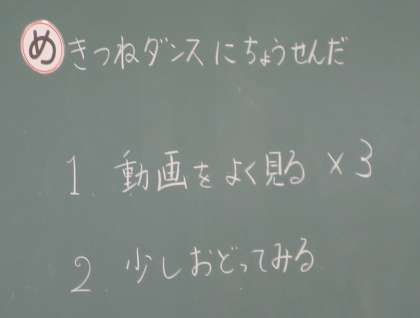 め きつねダンスにちょうせんだ
1. 動画をよく見る×3
2. 少しおどってみる